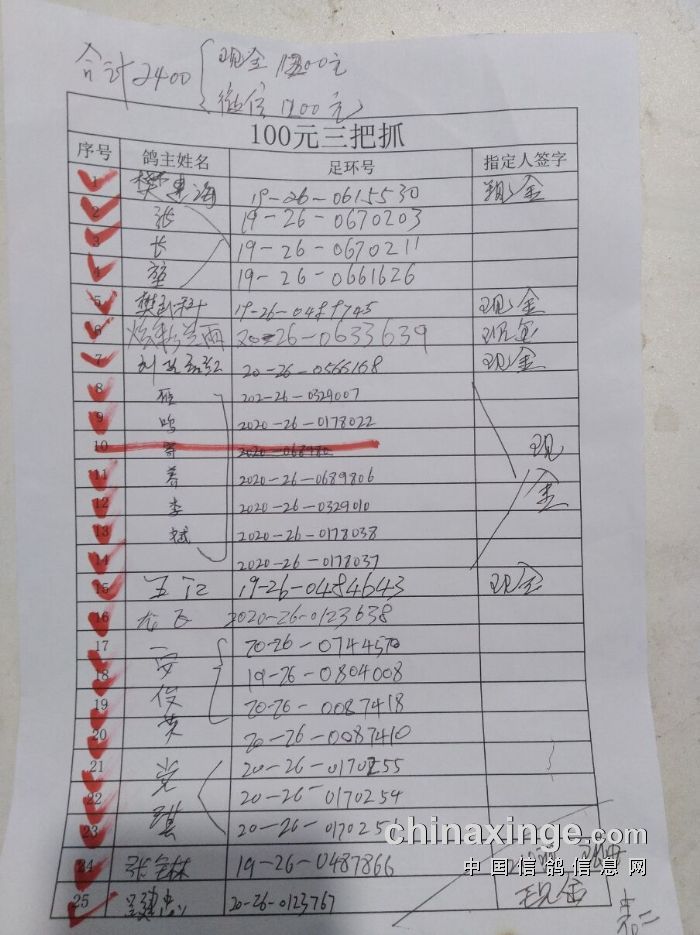 合计2400 现金1300元
微信1100元
100元三把抓
序号 鸽主姓名 足环号 指定人签字
1 樊惠海 19-26-0615530 现金
2 张 19-26-0670203
3 长 19-26-0670211
4 19-26-0661626
5 19-26-0489745 现金
6 2020-26-0633639 现金
7 20-26-0566168 现金
8 雁 202-26-0329007
9 鸣 2020-26-0178022
10 2020-068980 现
11 2020-26-0689806
12 李 2020-26-0329010 金
13 斌 2020-26-0178038
14 2020-26-0178037
15 王江 19-26-0484643 现金
16 龙飞 2020-26-0123638
17 20-26-0744570
18 安 19-26-0804008
19 俊 20-26-0087418
20 荣 20-26-0087410
21 党 20-26-0170255
22 20-26-0170254
23 琪 20-26-017025
chinaxinge.com
24 张全林 19-26-0487866
中国信鸽信息网
25 20-26-0123767 现金